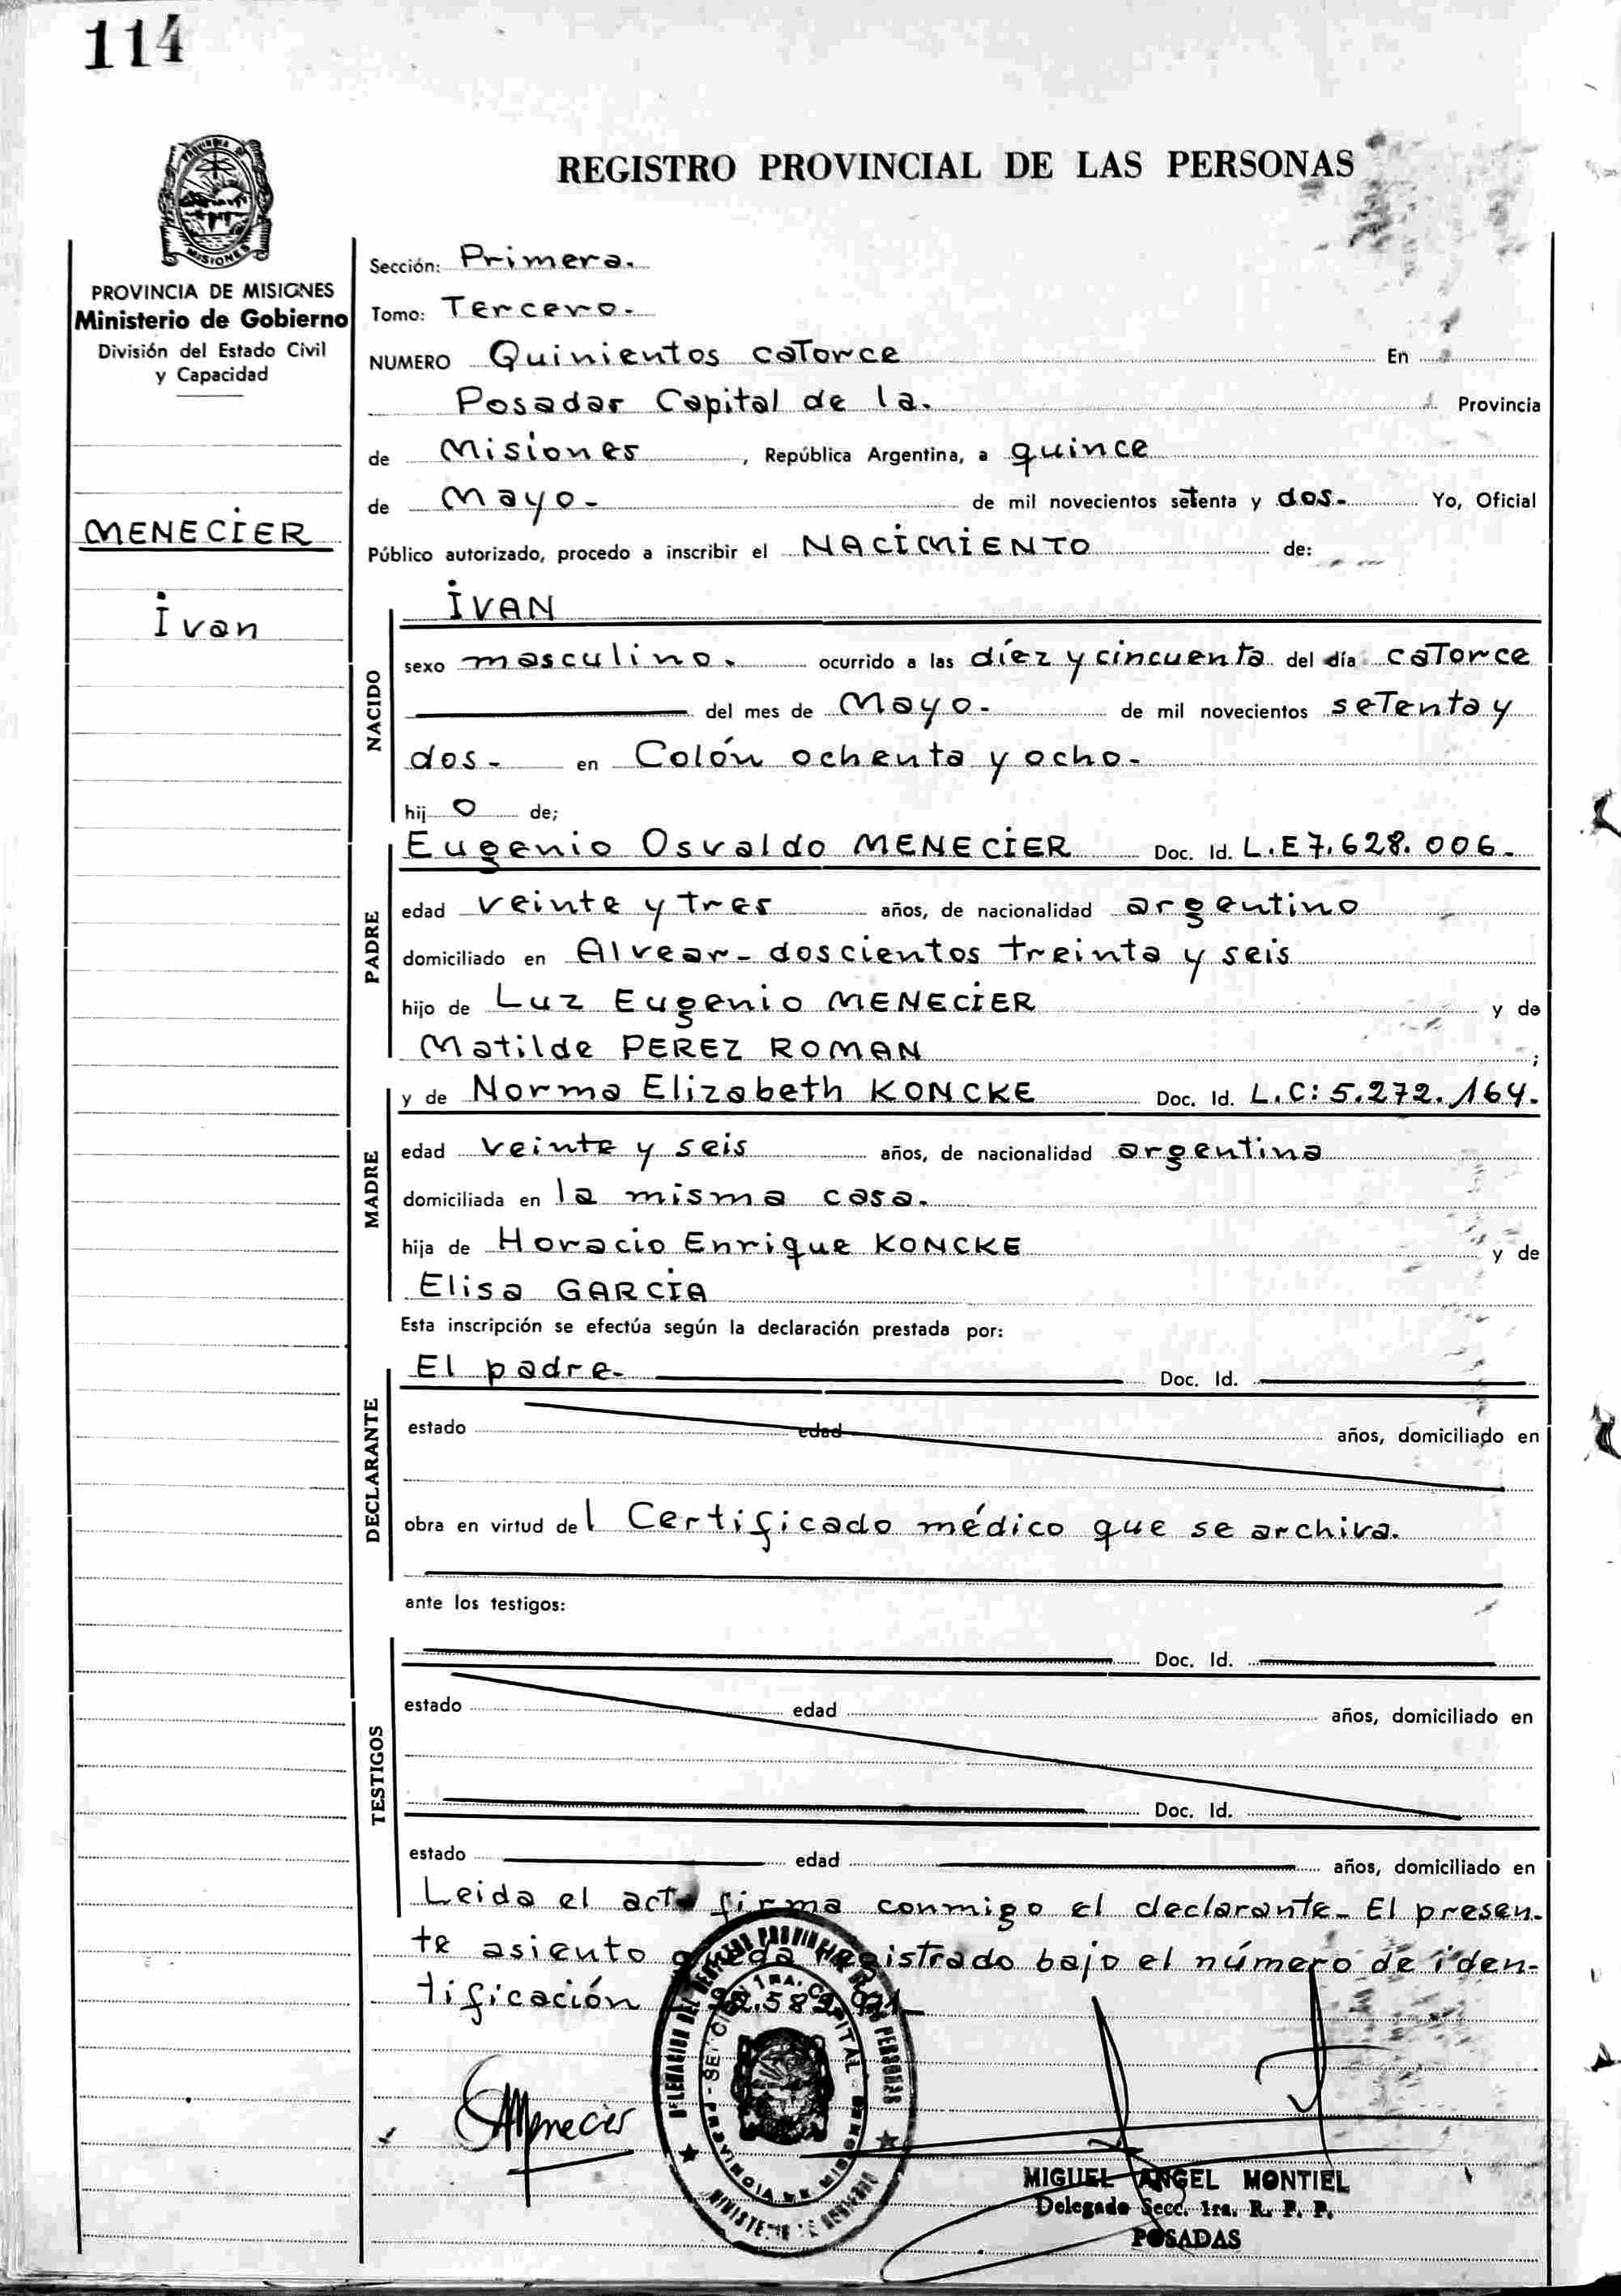 114
PROVINCIA DE
MISIONES
REGISTRO PROVINCIAL DE LAS PERSONAS
PROVINCIA DE MISIONES
Ministerio de Gobierno
División del Estado Civil
y Capacidad
MENECIER
Ivan
Sección: Primera.
Tomo: Tercero.
NUMERO Quinientos catorce En
Posadas Capital de la. Provincia
de Misiones, República Argentina, a quince
de Mayo- de mil novecientos setenta y dos.- Yo, Oficial
Público autorizado, procedo a inscribir el NACIMIENTO de:
NACIDO
IVAN
sexo masculino. ocurrido a las díez y cincuenta del día catorce
del mes de Mayo.- de mil novecientos setenta y
dos.- en Colón ochenta y ocho.-
hij o de;
PADRE
Eugenio Osvaldo MENECIER Doc. Id. L.E 7.628.006.-
edad veinte y tres años, de nacionalidad argentino
domiciliado en Alvear- doscientos treinta y seis
hijo de Luz Eugenio MENECIER y de
Matilde PEREZ ROMAN ;
MADRE
y de Norma Elizabeth KONCKE Doc. Id. L.C: 5.272.164.-
edad veinte y seis años, de nacionalidad argentina
domiciliada en la misma casa.
hija de Horacio Enrique KONCKE y de
Elisa GARCIA
Esta inscripción se efectúa según la declaración prestada por:
DECLARANTE
El padre. Doc. Id.
estado edad años, domiciliado en
obra en virtud del Certificado médico que se archiva.
ante los testigos:
TESTIGOS
Doc. Id.
estado edad años, domiciliado en
Doc. Id.
estado edad años, domiciliado en
Leida el acta firma conmigo el declarante. El presen-
te asiento queda registrado bajo el número de iden-
tificación
DELEGACION DEL REGISTRO PROVINCIAL DE LAS PERSONAS
SECCION 1RA. CAPITAL
PROVINCIA DE MISIONES
MINISTERIO DE GOBIERNO
Menecier
MIGUEL ANGEL MONTIEL
Delegado Secc. 1ra. R. P. P.
POSADAS